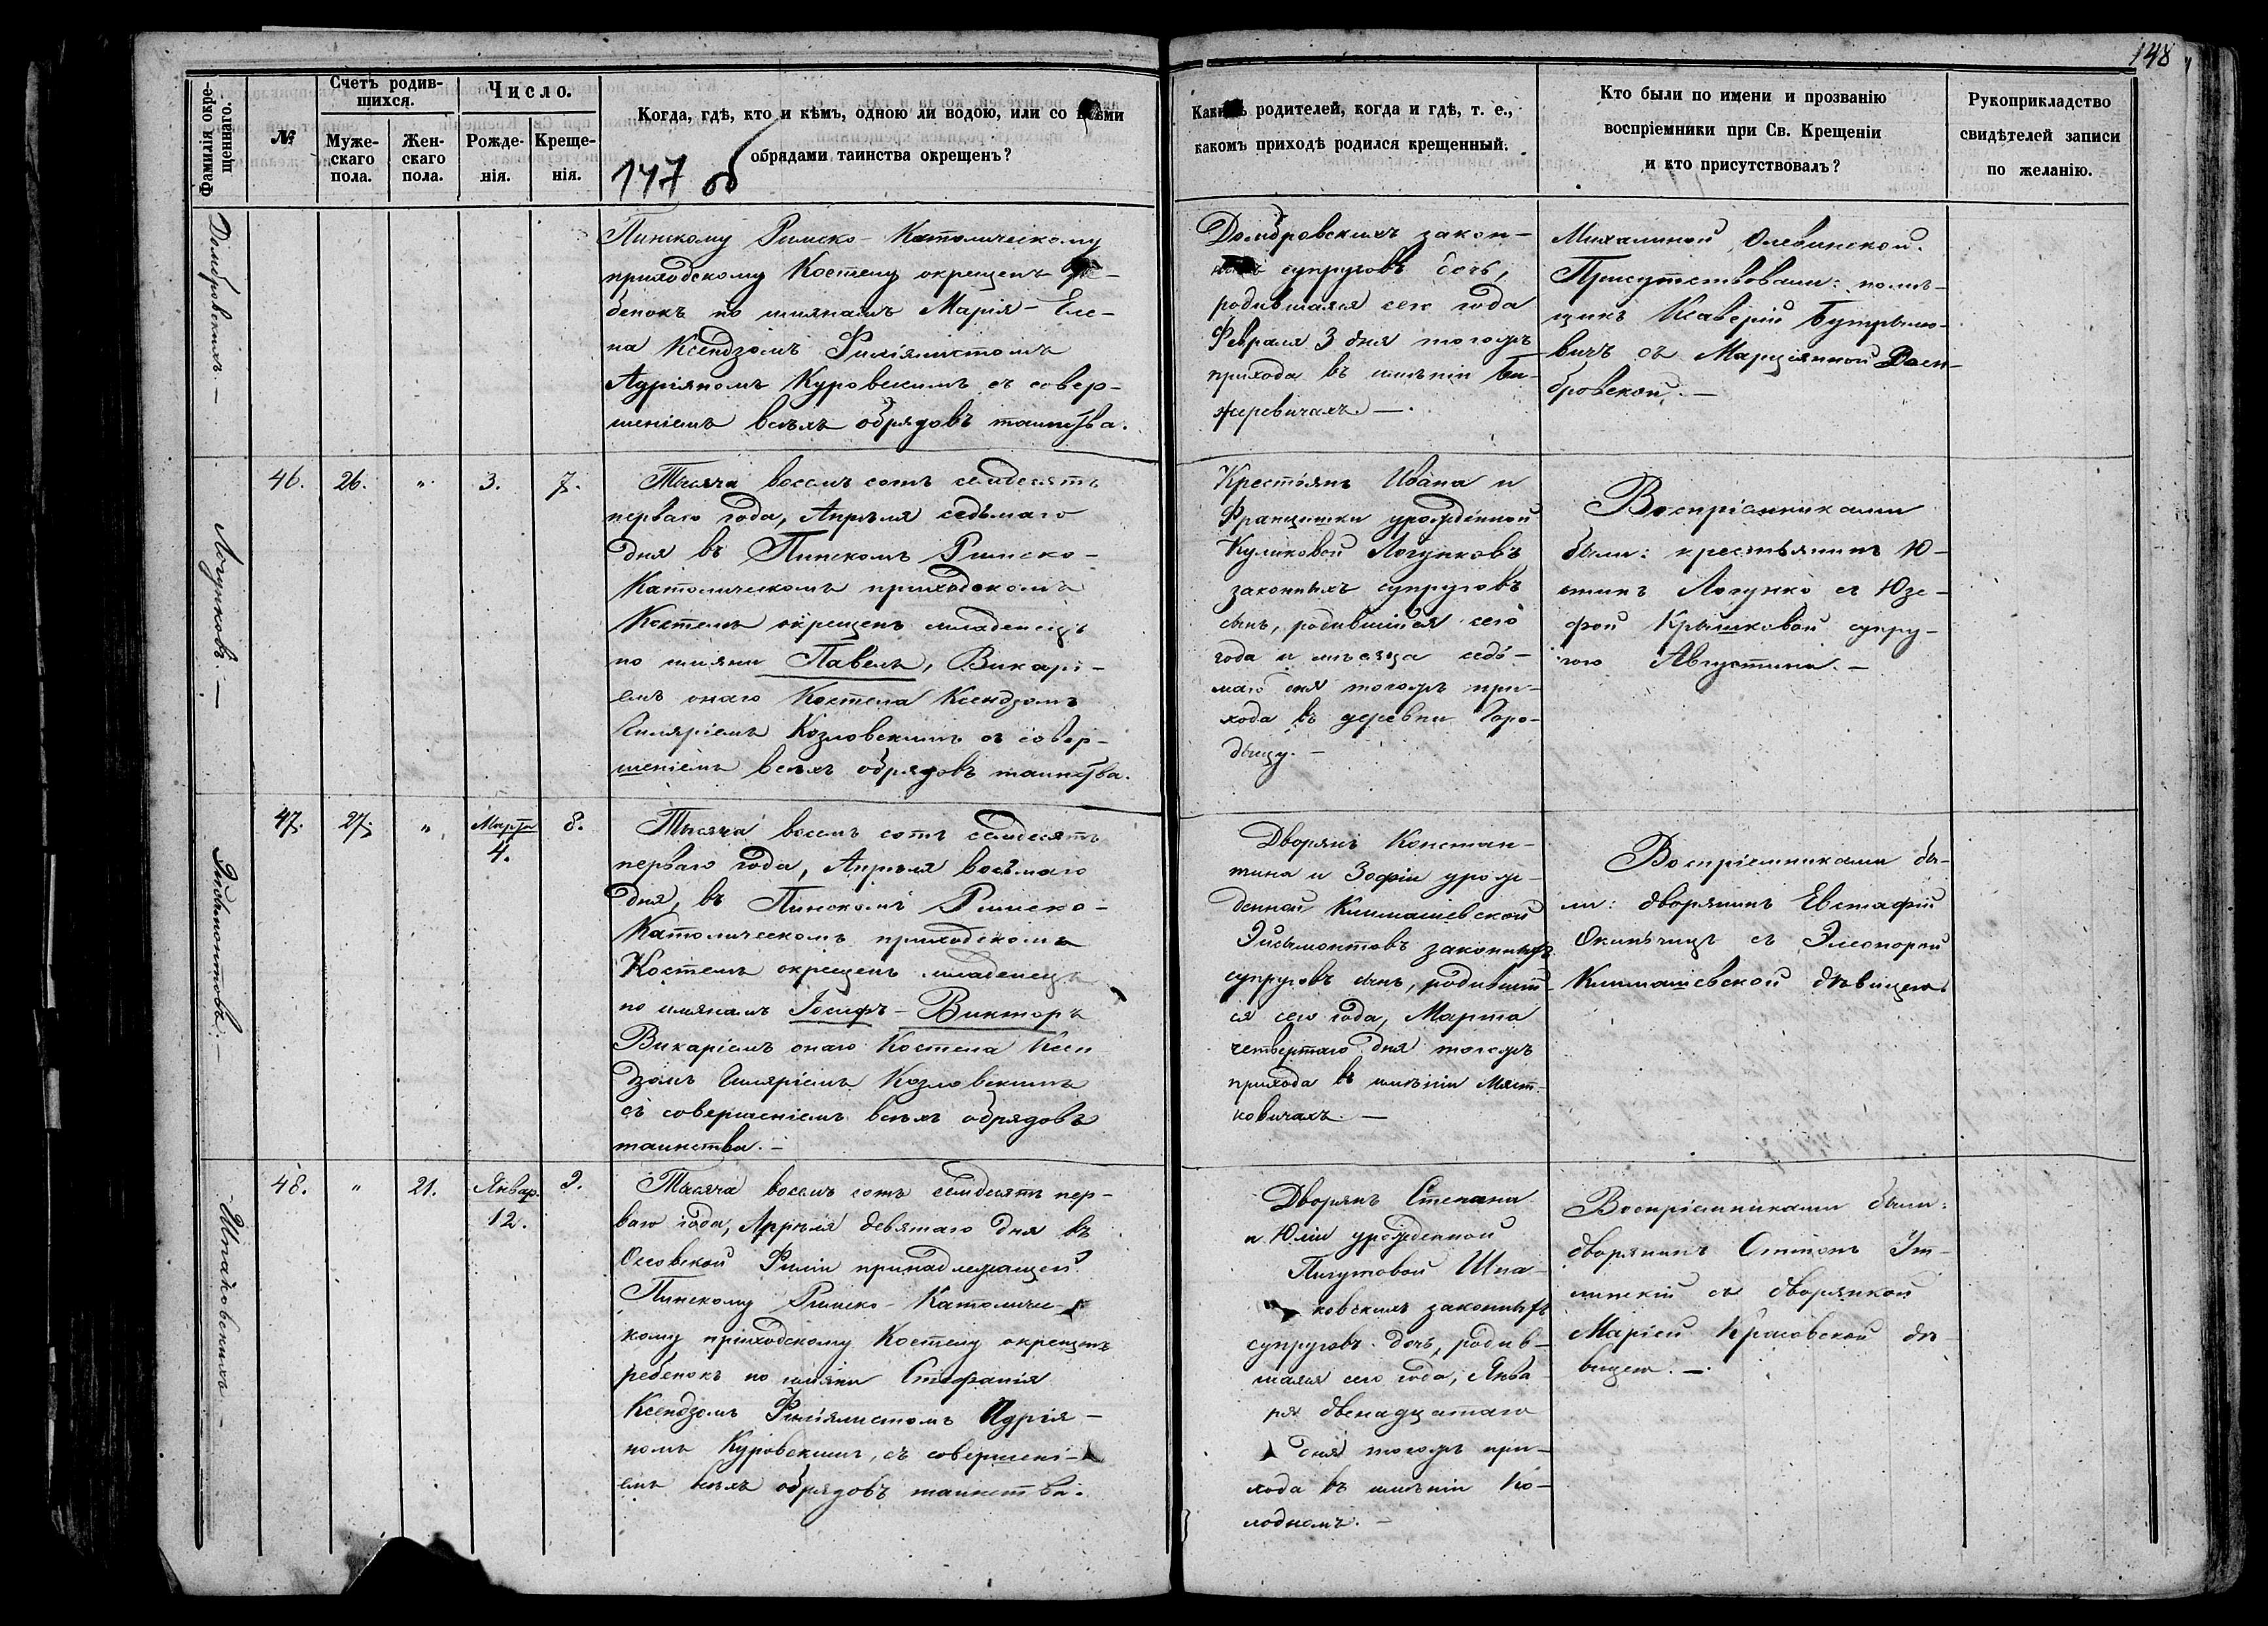 148
Фамилія окре-
щеннаго.
№
Счетъ родив-
шихся.
Муже-
скаго
пола.
Жен-
скаго
пола.
Число.
Рожде-
нія.
Креще-
нія.
Когда, гдѣ, кто и кѣмъ, одною ли водою, или со всѣми
обрядами таинства окрещенъ?
147 об
Какихъ родителей, когда и гдѣ, т. е.,
какомъ приходѣ родился крещенный.
Кто были по имени и прозванію
воспріемники при Св. Крещеніи
и кто присутствовалъ?
Рукоприкладство
свидѣтелей записи
по желанію.
Домбровскихъ. —
Пинскому Римско-Католическому
приходскому Костелу окрещенъ
бенокъ по имянамъ Марія-Еле-
на Ксендзомъ Филіялистомъ
Адріяномъ Куровскимъ съ совер-
шеніемъ всѣхъ обрядовъ таинства.
Домбровскихъ закон-
супруговъ дочь,
родившаяся сего года
Февраля 3 дня тогожъ
прихода въ имѣніи
жеревичахъ. —
Михалиной Олевинской.
Присутствовали: помѣ-
щикъ Ксаверій Бутрымо-
вичъ съ Марціянной Дом-
бровской. —
Логунковъ. —
46. 26. „ 3. 7.
Тысяча восемъ сотъ семдесятъ
перваго года, Апрѣля седьмаго
дня въ Пинскомъ Римско-
Католическомъ приходскомъ
Костелѣ окрещенъ младенецъ
по имяни Павелъ, Викарі-
емъ онаго Костела Ксендзомъ
Гиляріемъ Козловскимъ съ совер-
шеніемъ всѣхъ обрядовъ таинства.
Крестьянъ Ивана и
Францишки урожденной
Куликовой Логунковъ
законныхъ супруговъ
сынъ, родившійся сего
года и мѣсяца седь-
маго дня тогожъ при-
хода въ деревни Горо-
дищу. —
Воспріемниками
были: крестьянинъ Ю-
стинъ Логунко съ Юзе-
фой Крышковой супру-
гою Августина. —
Эйсымонтовъ. —
47. 27. „ Марта
4. 8.
Тысяча восемъ сотъ семдесятъ
перваго года, Апрѣля восьмаго
дня, въ Пинскомъ Римско-
Католическомъ приходскомъ
Костелѣ окрещенъ младенецъ
по имянамъ Іосифъ-Викторъ
Викаріемъ онаго Костела Ксен
дзомъ Гиляріемъ Козловскимъ
съ совершеніемъ всѣхъ обрядовъ
таинства. —
Дворянъ Констан-
тина и Зофіи урож-
денной Климашевской
Эйсымонтовъ законныхъ
супруговъ сынъ, родившій-
ся сего года, Марта
четвертаго дня тогожъ
прихода въ имѣніи Мяст-
ковичахъ. —
Воспріемниками бы-
ли: дворянинъ Евстафій
Окинчицъ съ Элеонорой
Климашевской дѣвицею.
Шпаковскихъ —
48. „ 21. Январ.
12. 9.
Тысяча восемъ сотъ семдесятъ пер-
ваго года, Апрѣля девятаго дня въ
Осовской Филіи принадлежащей
Пинскому Римско-Католичес-
кому приходскому Костелу окрещенъ
ребенокъ по имяни Стефанія
Ксендзомъ Филіялистомъ Адрія-
номъ Куровскимъ, съ совершені-
емъ всѣхъ обрядовъ таинства.
Дворянъ Степана
и Юліи урожденной
Пигутовой Шпа-
ковскихъ законныхъ
супруговъ дочь, родив-
шаяся сего года, Янва
ря двенадцатаго
дня тогожъ при-
хода въ имѣніи Ко-
лодномъ. —
Воспріемниками были:
дворянинъ Антонъ
съ дворянкой
Маріей дѣ-
вицею. —